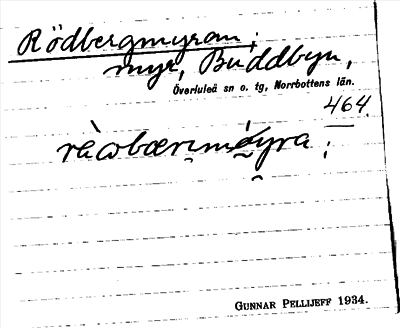 Rödbergmyran,
myr, Buddbyn,
Överluleå sn o. tg, Norrbottens län.
464
GUNNAR PELLIJEFF 1934.